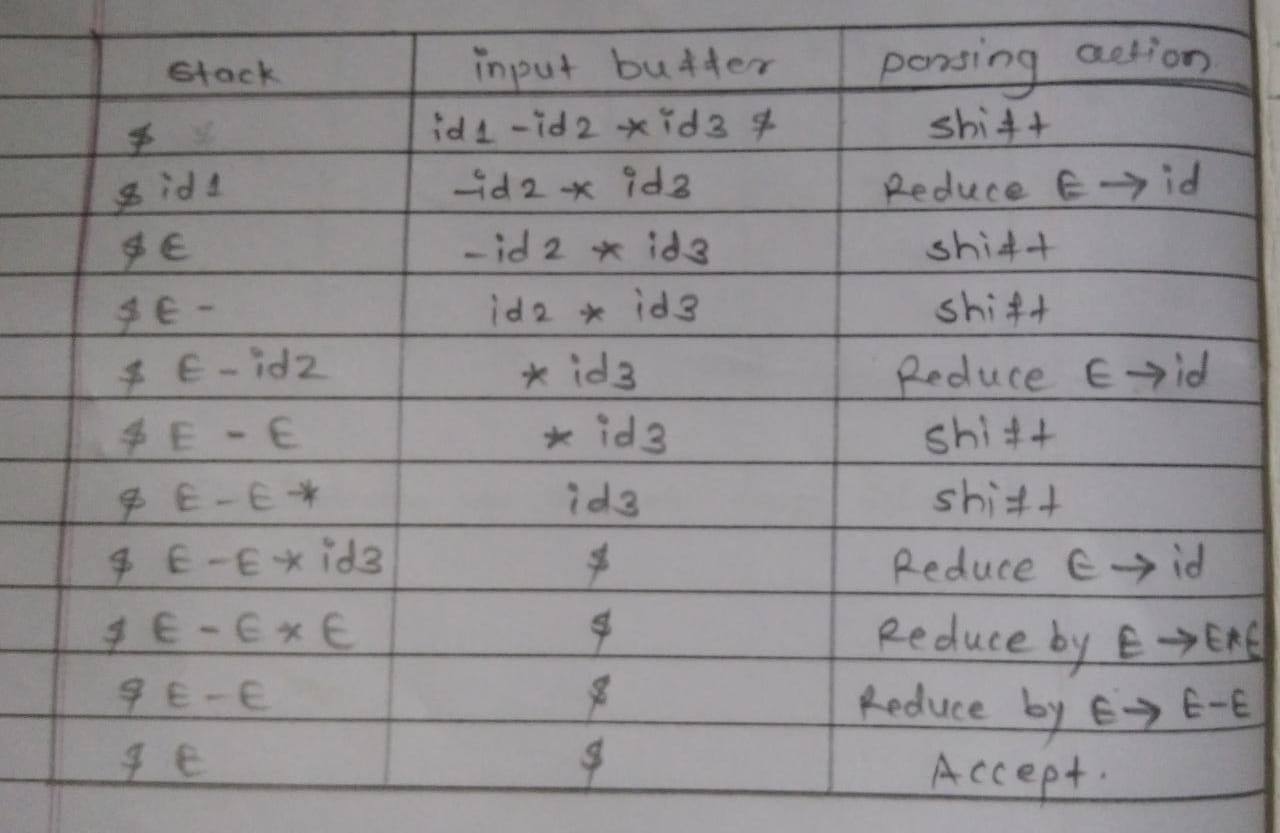 stack input buffer parsing action
$ id1 -id2 * id3 $ shift
$ id1 -id2 * id3 Reduce E → id
$ E -id2 * id3 shift
$ E - id2 * id3 shift
$ E - id2 * id3 Reduce E → id
$ E - E * id3 shift
$ E - E * id3 shift
$ E - E * id3 $ Reduce E → id
$ E - E * E $ Reduce by E → E*E
$ E - E $ Reduce by E → E-E
$ E $ Accept.